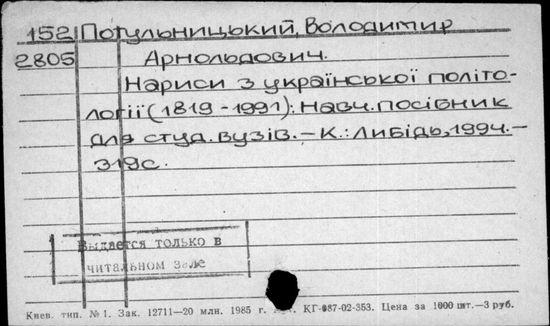 152 Потульницький, Володимир
2805 Арнольдович.
Нариси з української політо-
логії (1819-1991): Навч. посібник
для студ. вузів. – К.: Либідь, 1994. –
319с.
Выдается только в
читальном зале
Киев. тип. № 1. Зак. 12711—20 млн. 1985 г. КГ-987-02-353. Цена за 1000 шт.—3 руб.